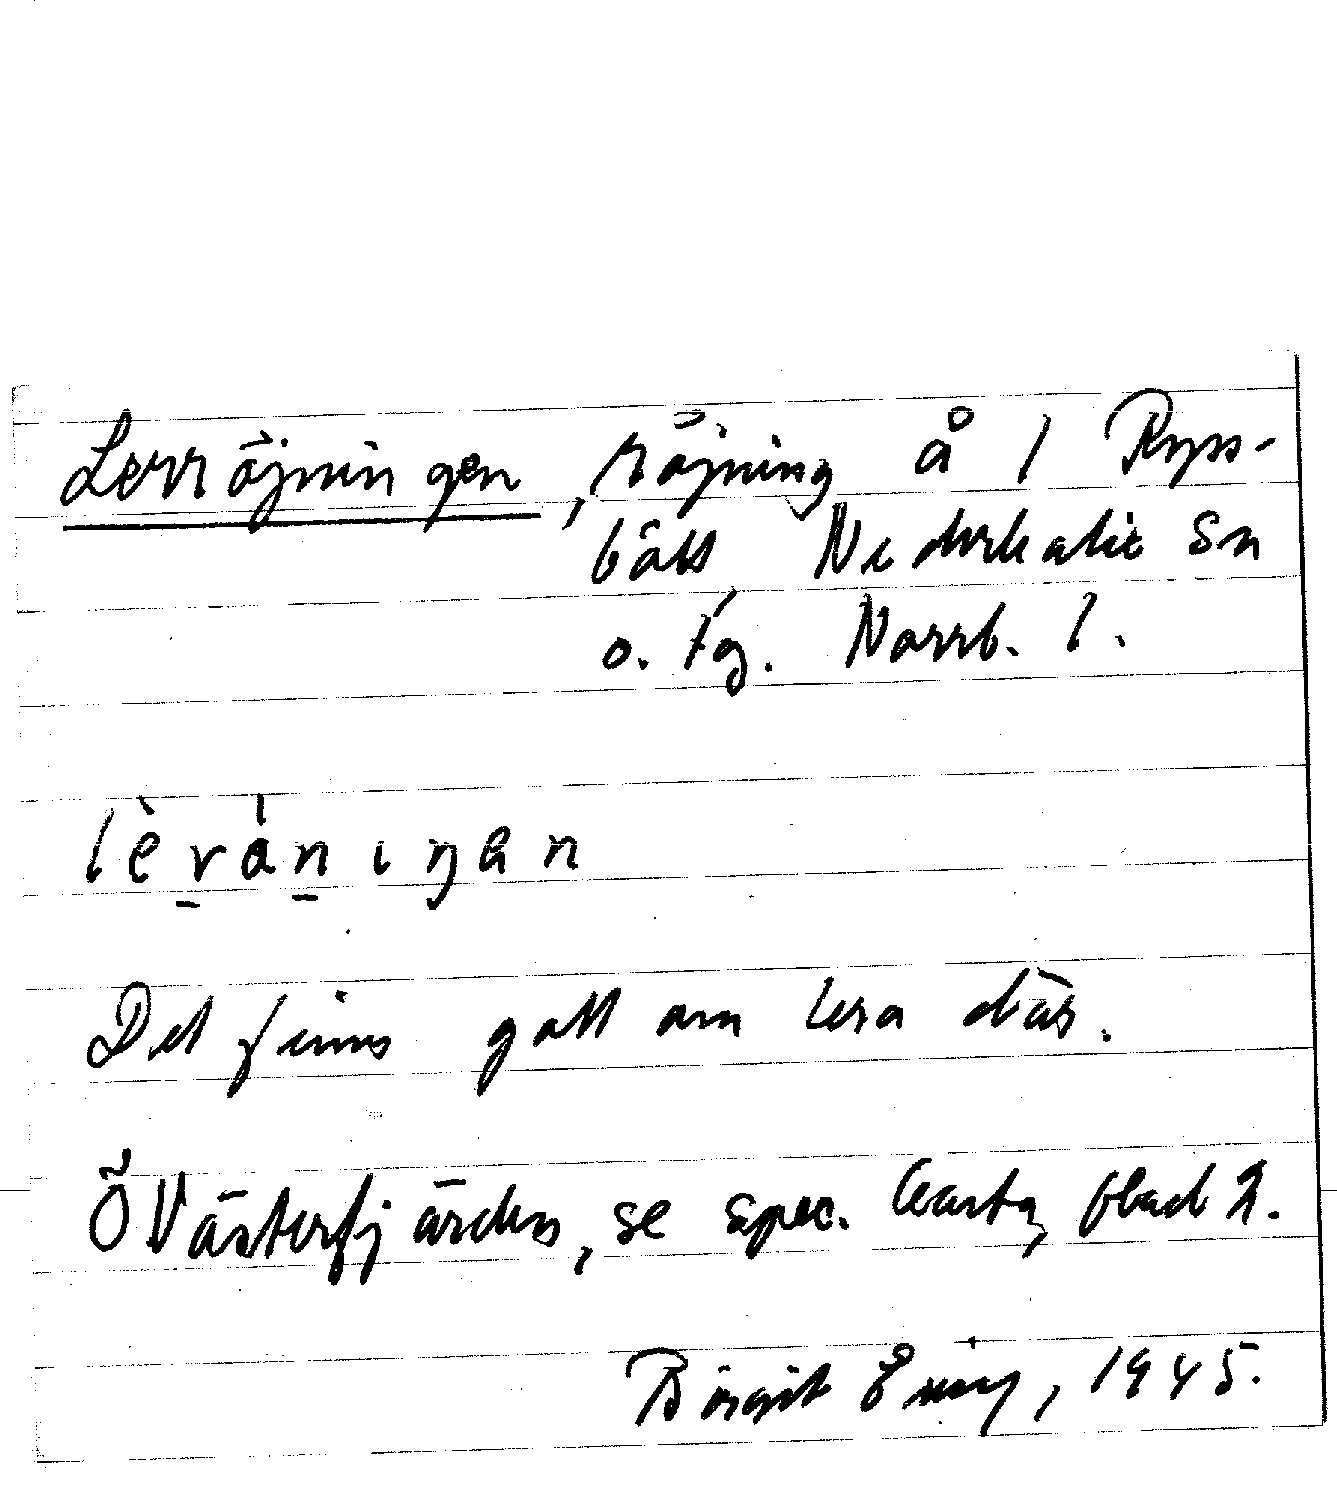 Lerröjningen, röjning å 1 Ryss-
bält Nederkalix sn
o. tg. Norrb. l.
lèv̱ȧṉıŋen
Det finns gott om lera där.
Ö Västerfjärden, se spec. karta, blad 2.
Birgit 1945.